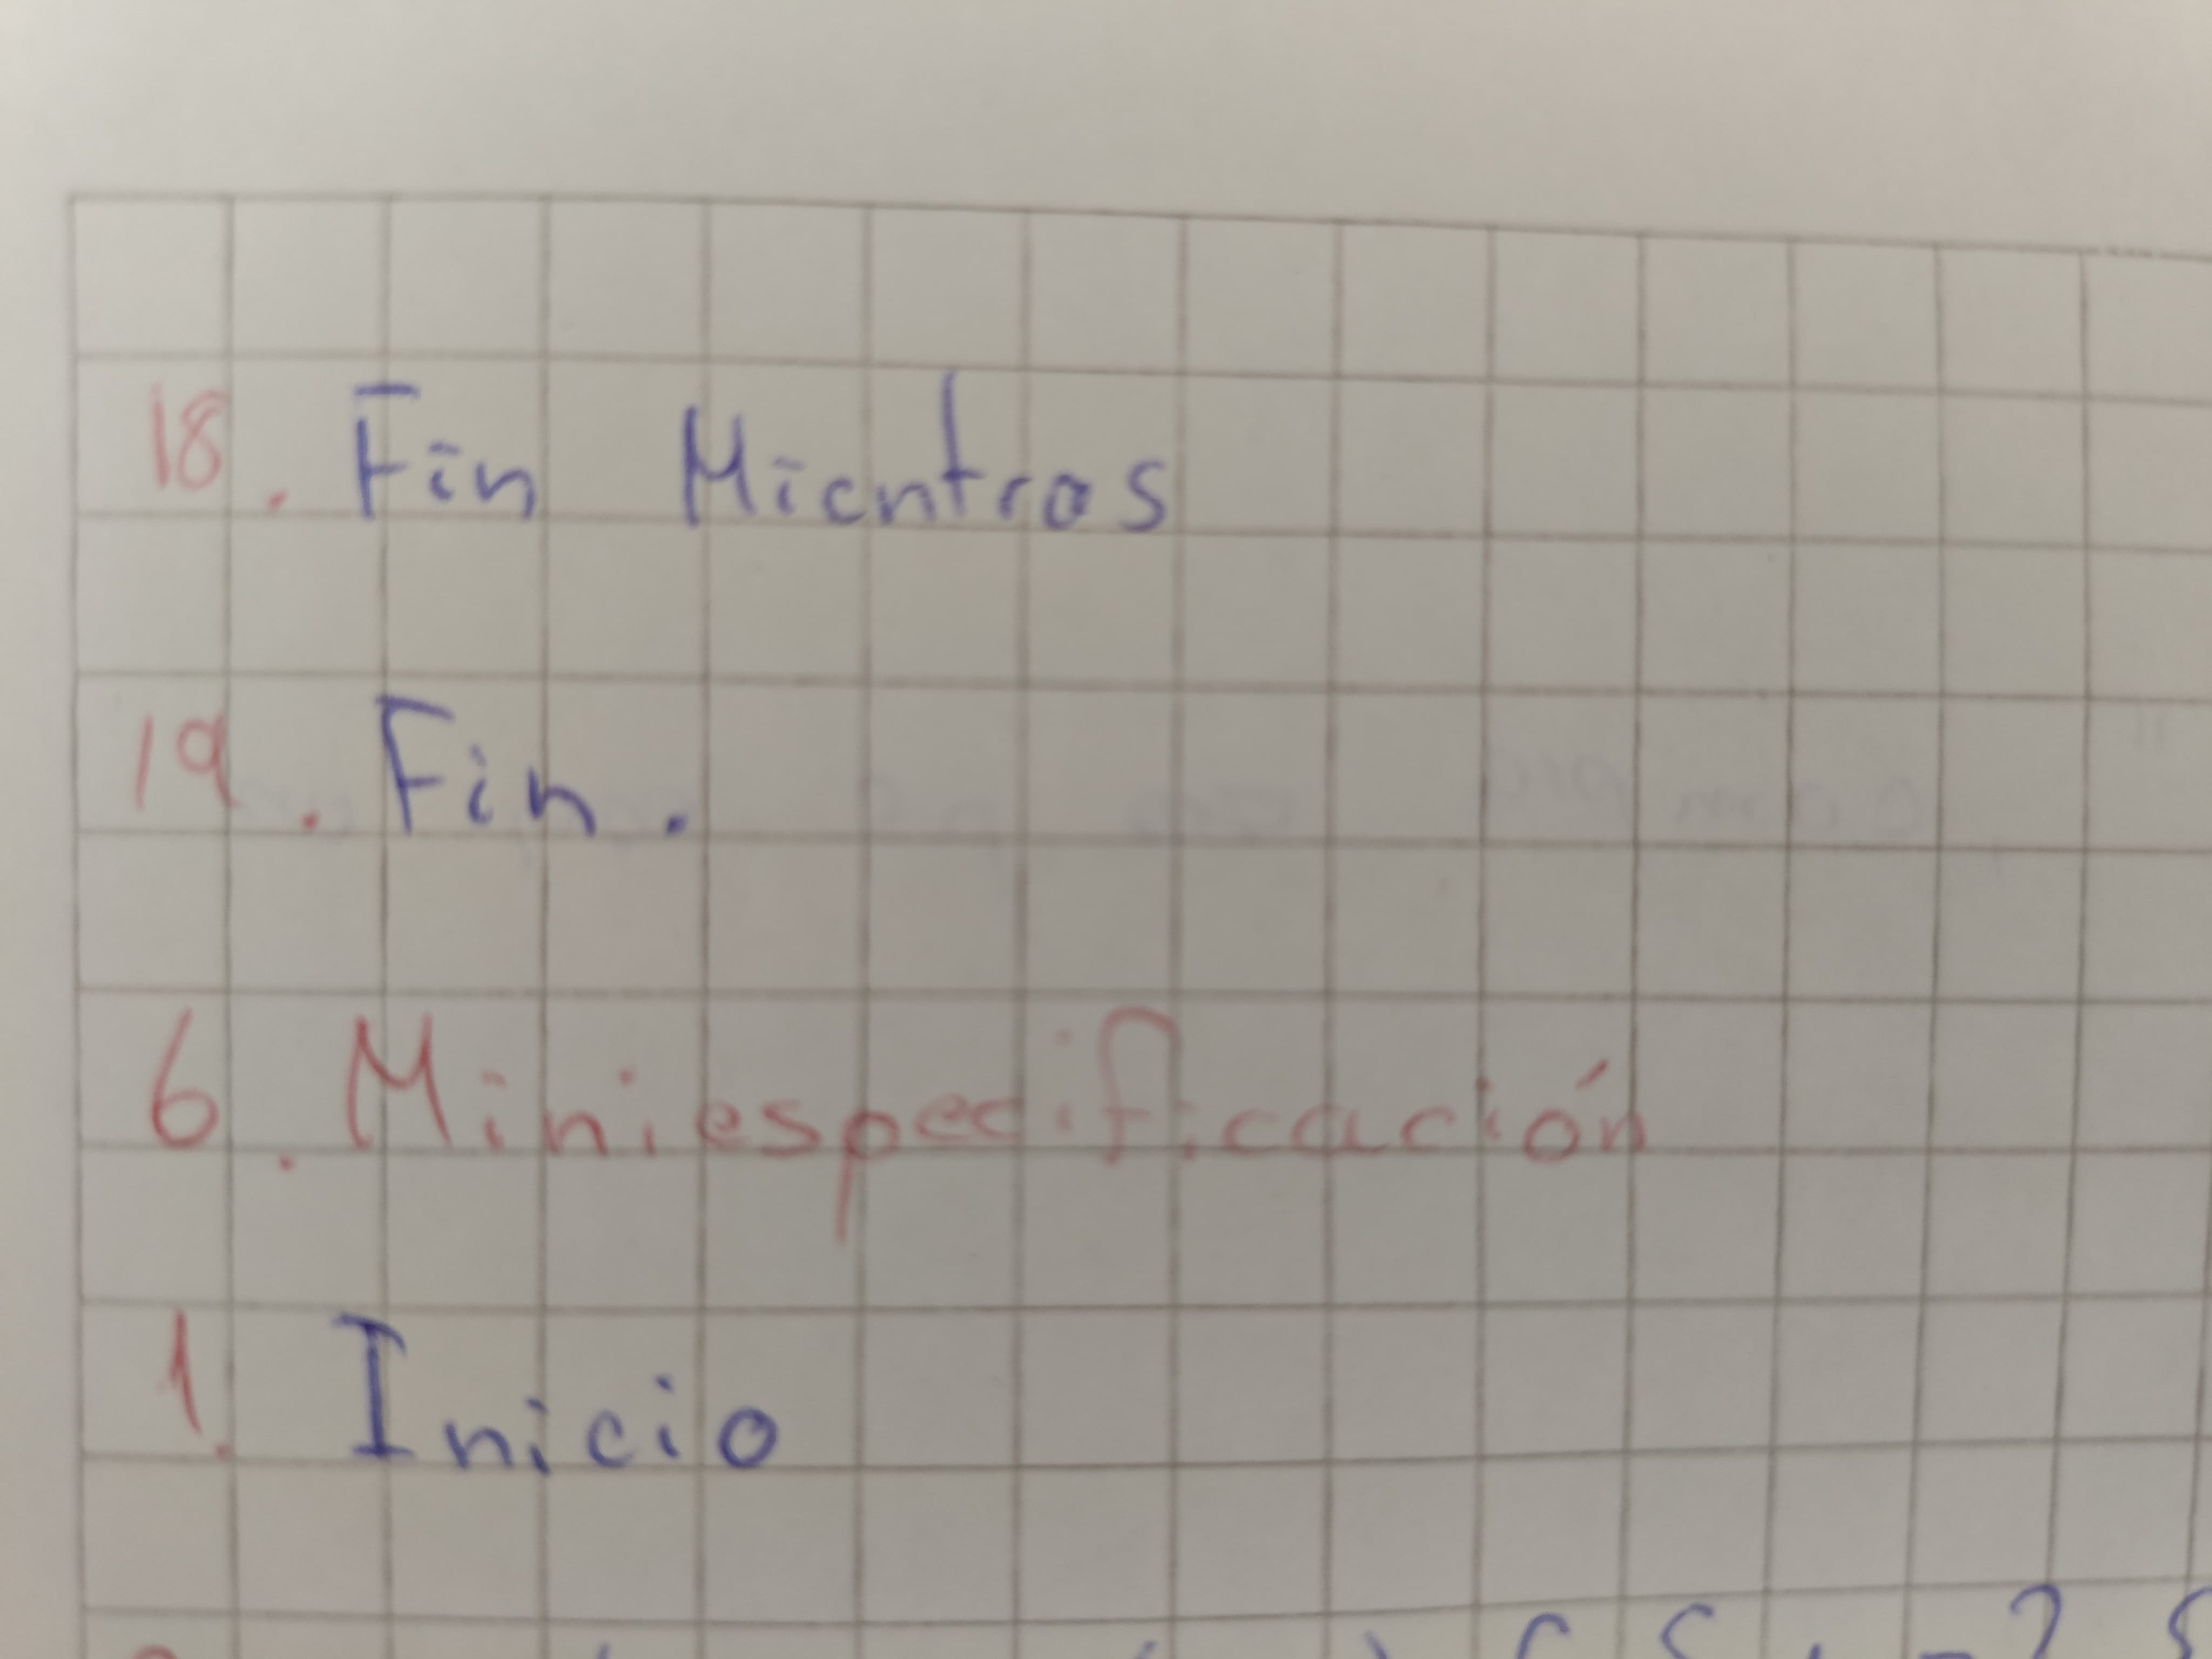 18. Fin Mientras
19. Fin.
6. Miniespecificación
1. Inicio